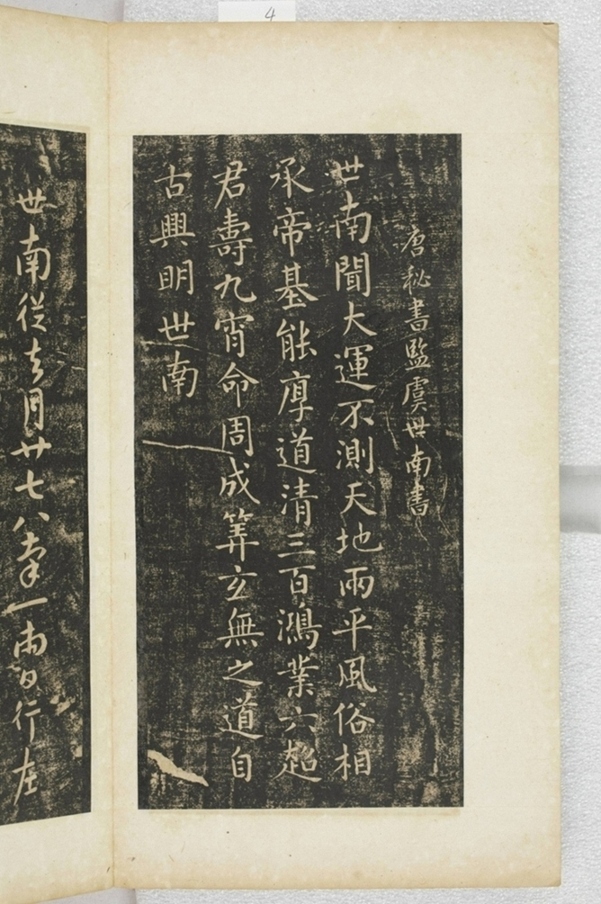 4
唐秘書監虞世南書
世南聞大運不測天地兩平風俗相
承帝基能厚道清三百鴻業六超
君壽九宵命周成筭玄無之道自
古興明世南
世南從去月廿七八率一兩日行左